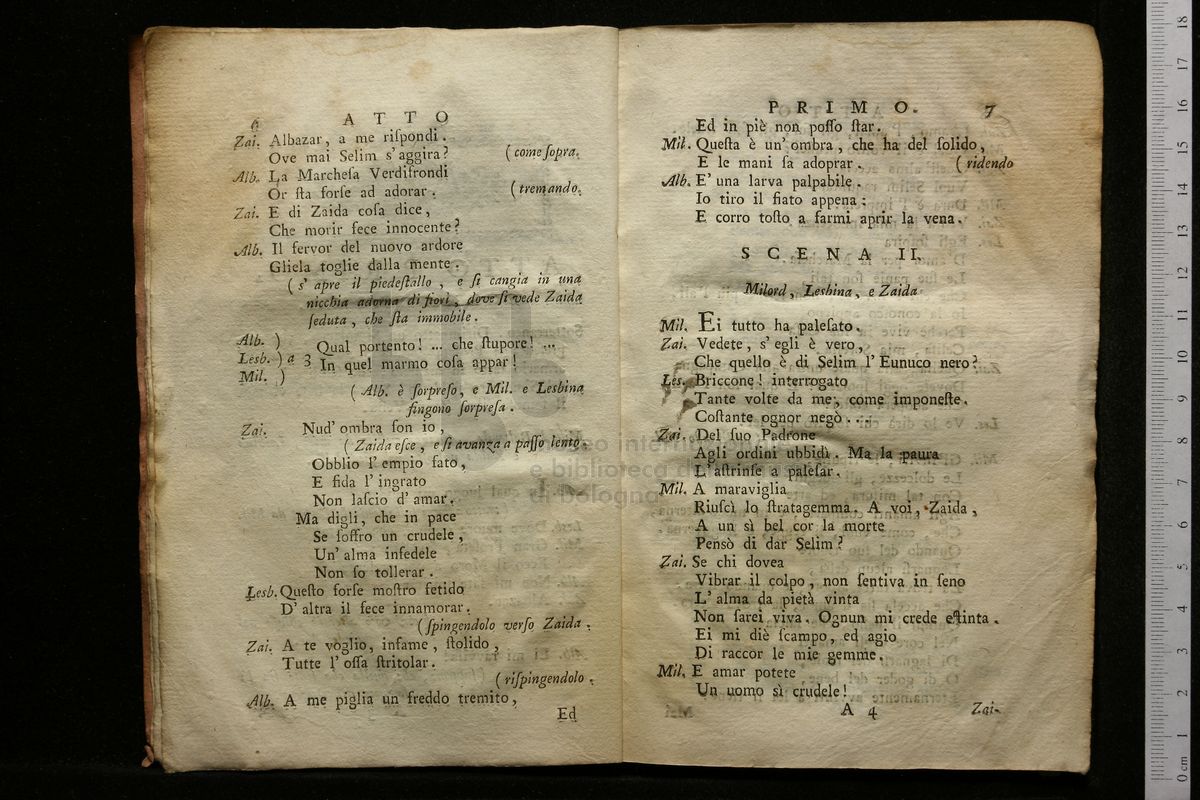 6 ATTO
Zai. Albazar, a me riſpondi.
Ove mai Selim s'aggira? (come ſopra.
Alb. La Marcheſa Verdiſrondi
Or ſta forſe ad adorar. (tremando.
Zai. E di Zaida coſa dice,
Che morir fece innocente?
Alb. Il fervor del nuovo ardore
Gliela toglie dalla mente.
(s'apre il piedeſtallo, e ſi cangia in una
nicchia adorna di fiori, dove ſi vede Zaida
ſeduta, che ſta immobile.
Alb. )
Lesb. ) a 3
Mil. )
Qual portento! ... che ſtupore! ...
In quel marmo coſa appar!
(Alb. è ſorpreſo, e Mil. e Lesbina
fingono ſorpreſa.
Zai. Nud' ombra ſon io,
(Zaida eſce, e ſi avanza a paſſo lento.
Obblio l'empio fato,
E fida l'ingrato
Non laſcio d'amar.
Ma digli, che in pace
Se ſoffro un crudele,
Un' alma infedele
Non ſo tollerar.
Lesb. Queſto forſe moſtro fetido
D'altra il fece innamorar.
(ſpingendolo verſo Zaida.
Zai. A te voglio, infame, ſtolido,
Tutte l'oſſa ſtritolar.
(riſpingendolo.
Alb. A me piglia un freddo tremito,
Ed
PRIMO. 7
Ed in piè non poſſo ſtar.
Mil. Queſta è un' ombra, che ha del ſolido,
E le mani ſa adoprar. (ridendo
Alb. E' una larva palpabile.
Io tiro il fiato appena:
E corro toſto a farmi aprir la vena.
SCENA II.
Milord, Lesbina, e Zaida
Mil. Ei tutto ha paleſato.
Zai. Vedete, s'egli è vero,
Che quello è di Selim l'Eunuco nero?
Les. Briccone! interrogato
Tante volte da me, come imponeſte.
Coſtante ognor negò....
Zai. Del ſuo Padrone
Agli ordini ubbidì. Ma la paura
L'aſtrinſe a paleſar.
Mil. A maraviglia
Riuſcì lo ſtratagemma. A voi, Zaida,
A un sì bel cor la morte
Pensò di dar Selim?
Zai. Se chi dovea
Vibrar il colpo, non ſentiva in ſeno
L'alma da pietà vinta
Non ſarei viva. Ognun mi crede eſtinta.
Ei mi diè ſcampo, ed agio
Di raccor le mie gemme.
Mil. E amar potete
Un uomo sì crudele!
A 4
Zai-
museo internazionale
e biblioteca della musica
di Bologna
0 cm 1 2 3 4 5 6 7 8 9 10 11 12 13 14 15 16 17 18